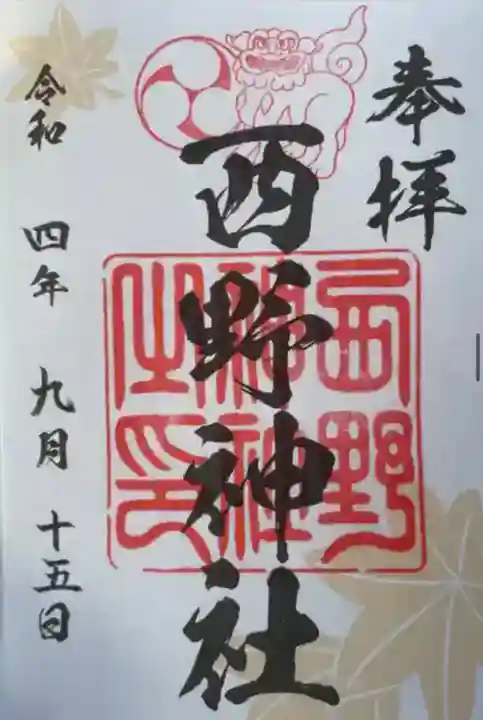 奉拝
西野神社
西野
神社
之印
令和 四年 九月 十五日